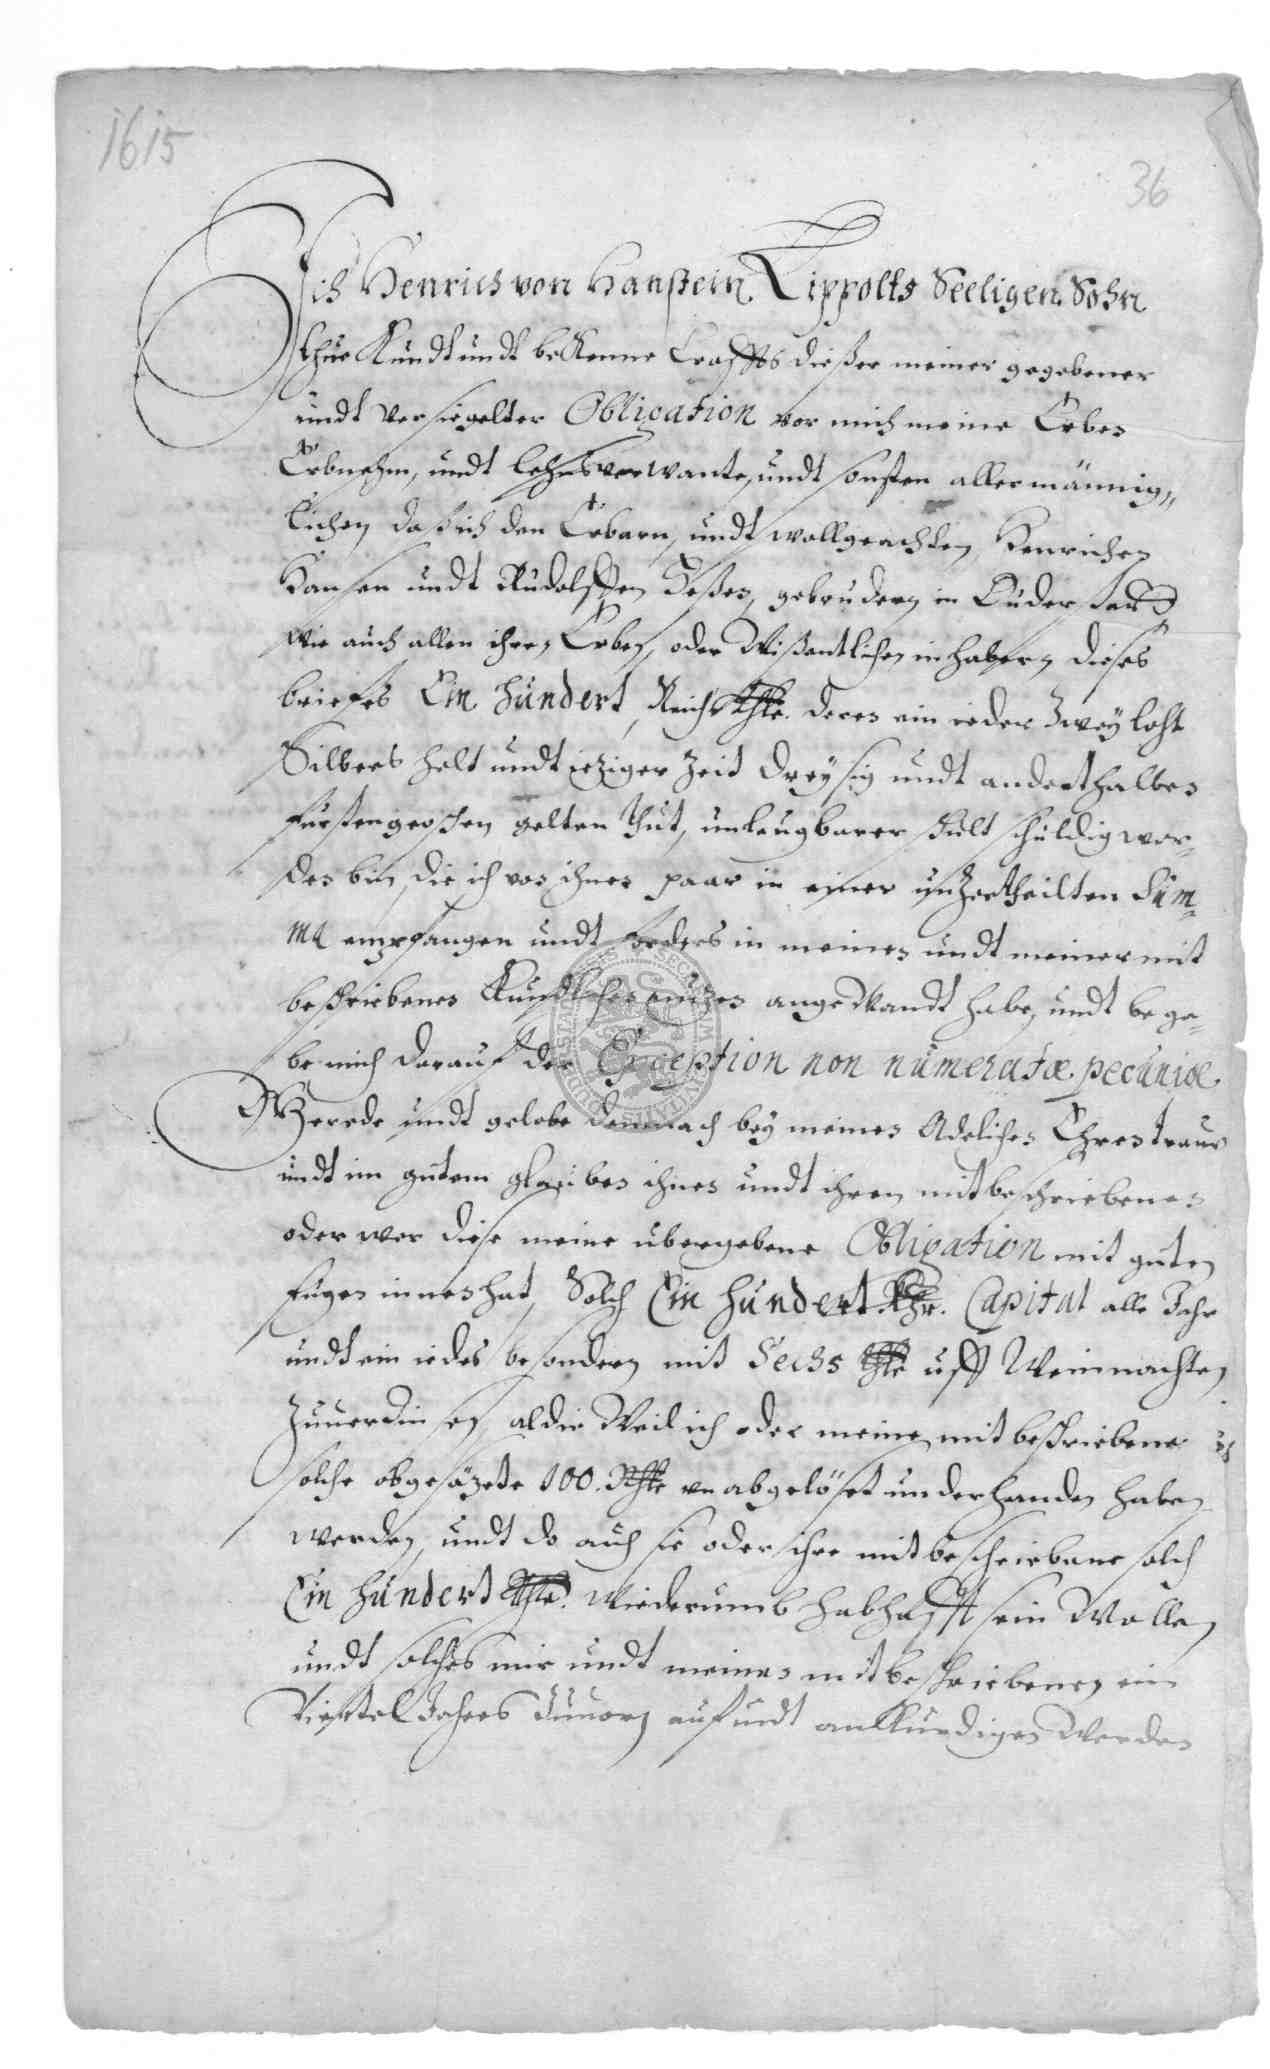 1615
36
Ich Henrich von Hanstein Lippolts Seeligen Sohn
Thue Kundt undt bekenne Crafftt dießer meiner gegebener
undt versiegelter Obligation vor mich meine Erben
Erbnehm, undt lehnsverwante, undt sonsten allermännig„
lichen daß ich den Erbarn, undt wollgeachten, Henrichen
Hansen undt Rudolffen Heßen, gebrudern in Duderstadt
wie auch allen ihren Erben, oder wißentlichen inhabern dieses
briefes Ein hundert, Reichsthlr. deren ein ieder Zwey loht
Silbers helt undt ieziger Zeit dreysig undt anderthalben
furstengroschen gelten thut, unleugbarer schult schuldig wor„
den bin, die ich von ihnen paar in einer unzertheilten Sum„
ma empfangen undt forders in meinen undt meiner mit
beschriebenen Kundtlichen nuzen angewandt habe, undt bege„
be mich darauf der Exception non numeratæ pecuniæ
Gerede undt gelobe demnach bey meinen Adelichen Ehren traue
undt im gutem glauben ihnen undt ihren mitbeschriebenen
oder wer diese meine ubergebene Obligation mit guten
fugen innen hat, Solch Ein hundert Rthr. Capital alle Jahr
undt ein iedes besondern mit Sechs thlr uff Weinnachten
Zuuerzinsen, aldie Weil ich oder meine mitbeschriebene
solche obgesäzete 100. Rthlr unabgelöset underhanden haben
werden, undt do auch sie oder ihre mitbeschriebene solch
Ein hundert thlr. Wiederumb habhafft sein Wollen
undt solches mir undt meinen mitbeschriebenen ein
Viertel Jahres Zuuorn auf undt ankundigen Werden